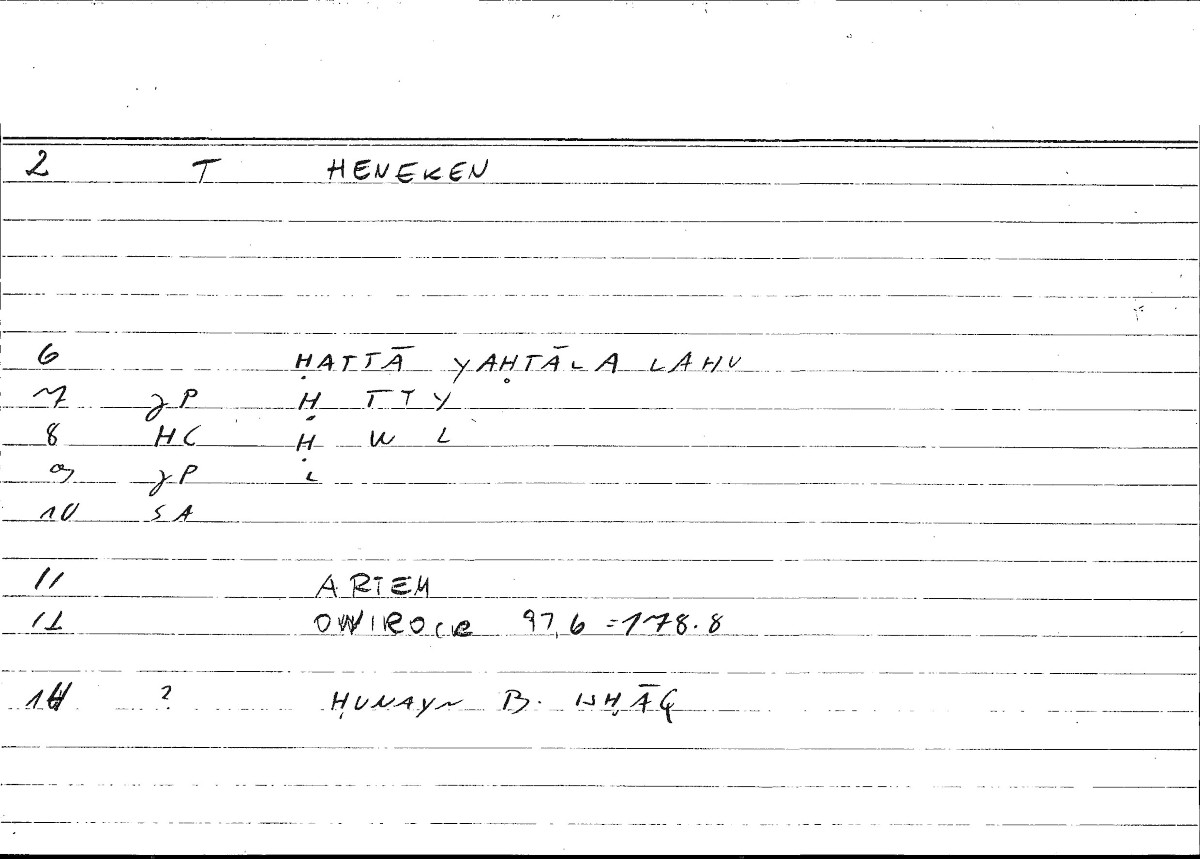 2 T HENEKEN
6 ḤATTĀ YAḤTĀLA LAHU
7 gP Ḥ TTY
8 HC Ḥ W L
9 gP L
10 SA
11 ARTEM
12 97,6 = 178.8
14 ? ḤUNAYN B. ISḤĀQ